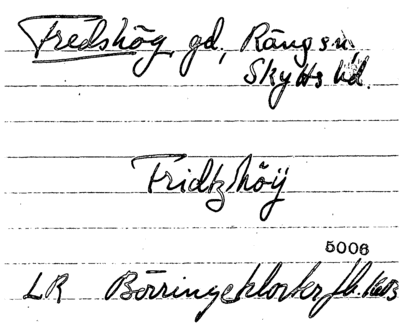 Fredshög, gd, Räng sn,
Skytts hd.
Fridtzhöÿ
5006
LR Börringekloster jb.